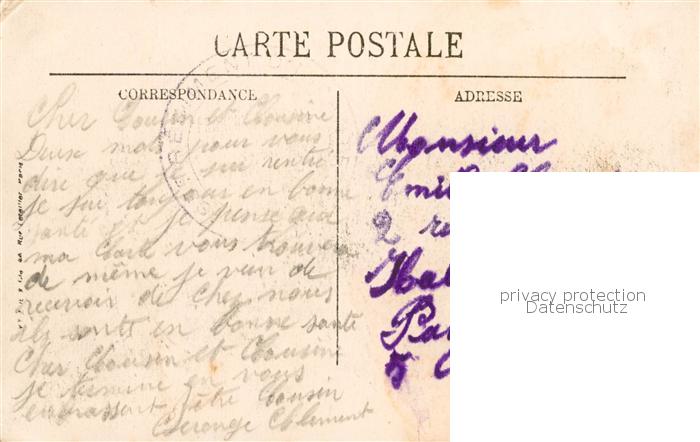 CARTE POSTALE
CORRESPONDANCE
ADRESSE
Cher Cousin et Cousine
Deuse mots pour vous
dire que je sui rentré
je sui toujour en bonne
santé et je pense que
ma Carte vous trouvera
de même je vien de
recevoir de chez nous
ils sont en bonne santé
Cher Cousin et Cousine
je termine en vous
embrassent vôtre Cousin
Clément
Monsieur
2
5
privacy protection
Datenschutz